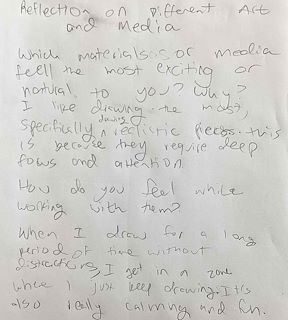 Reflection on Different Art
and Media
Which materials or media
feel the most exciting or
natural to you? Why?
I like drawing the most,
specifically during realistic pieces. this
is because they require deep
focus and attention
How do you feel while
working with them?
When I draw for a long
period of time without
distractions, I get in a zone
where I just keep drawing. It's
also really calming and fun.